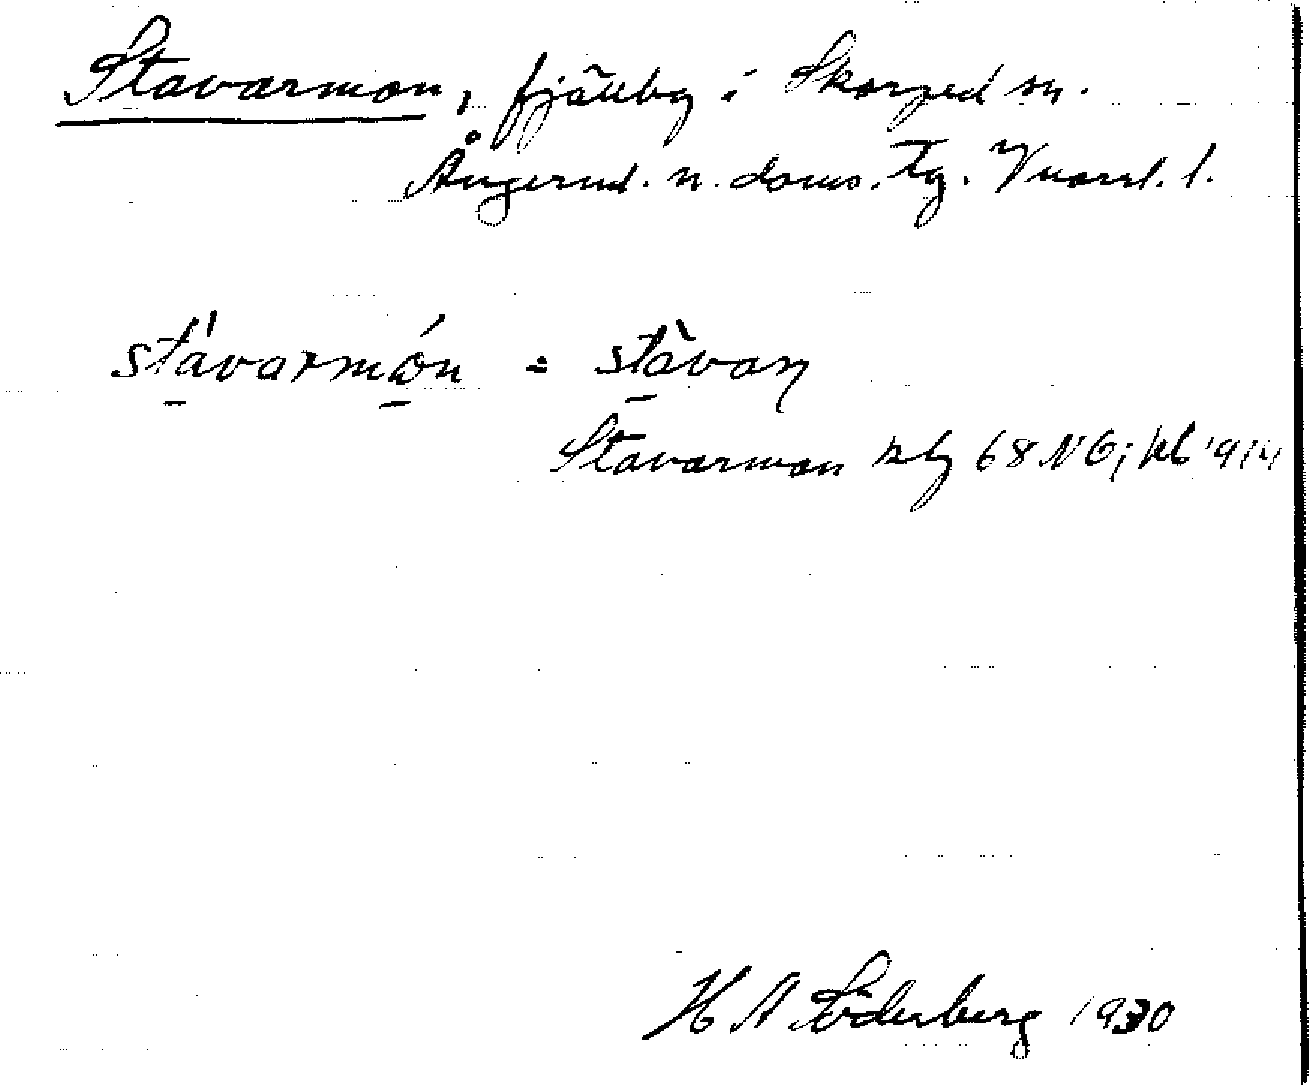 Stavarmon, fjällby i Skorped sn.
Ångerml. n. doms. tg. Vnorrl. l.
stávarmón = stàvaɳ
Stavarmon kbg 68 NO; kb 1914
H A Söderberg 1930